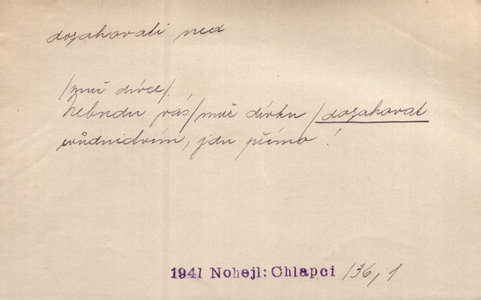 dosahovati ned
/muž dívce/.
Nebudu vás /muž dívku / dosahovat
vůdnictvím, jdu přímo!
1941 Nohejl: Chlapci 136, 1